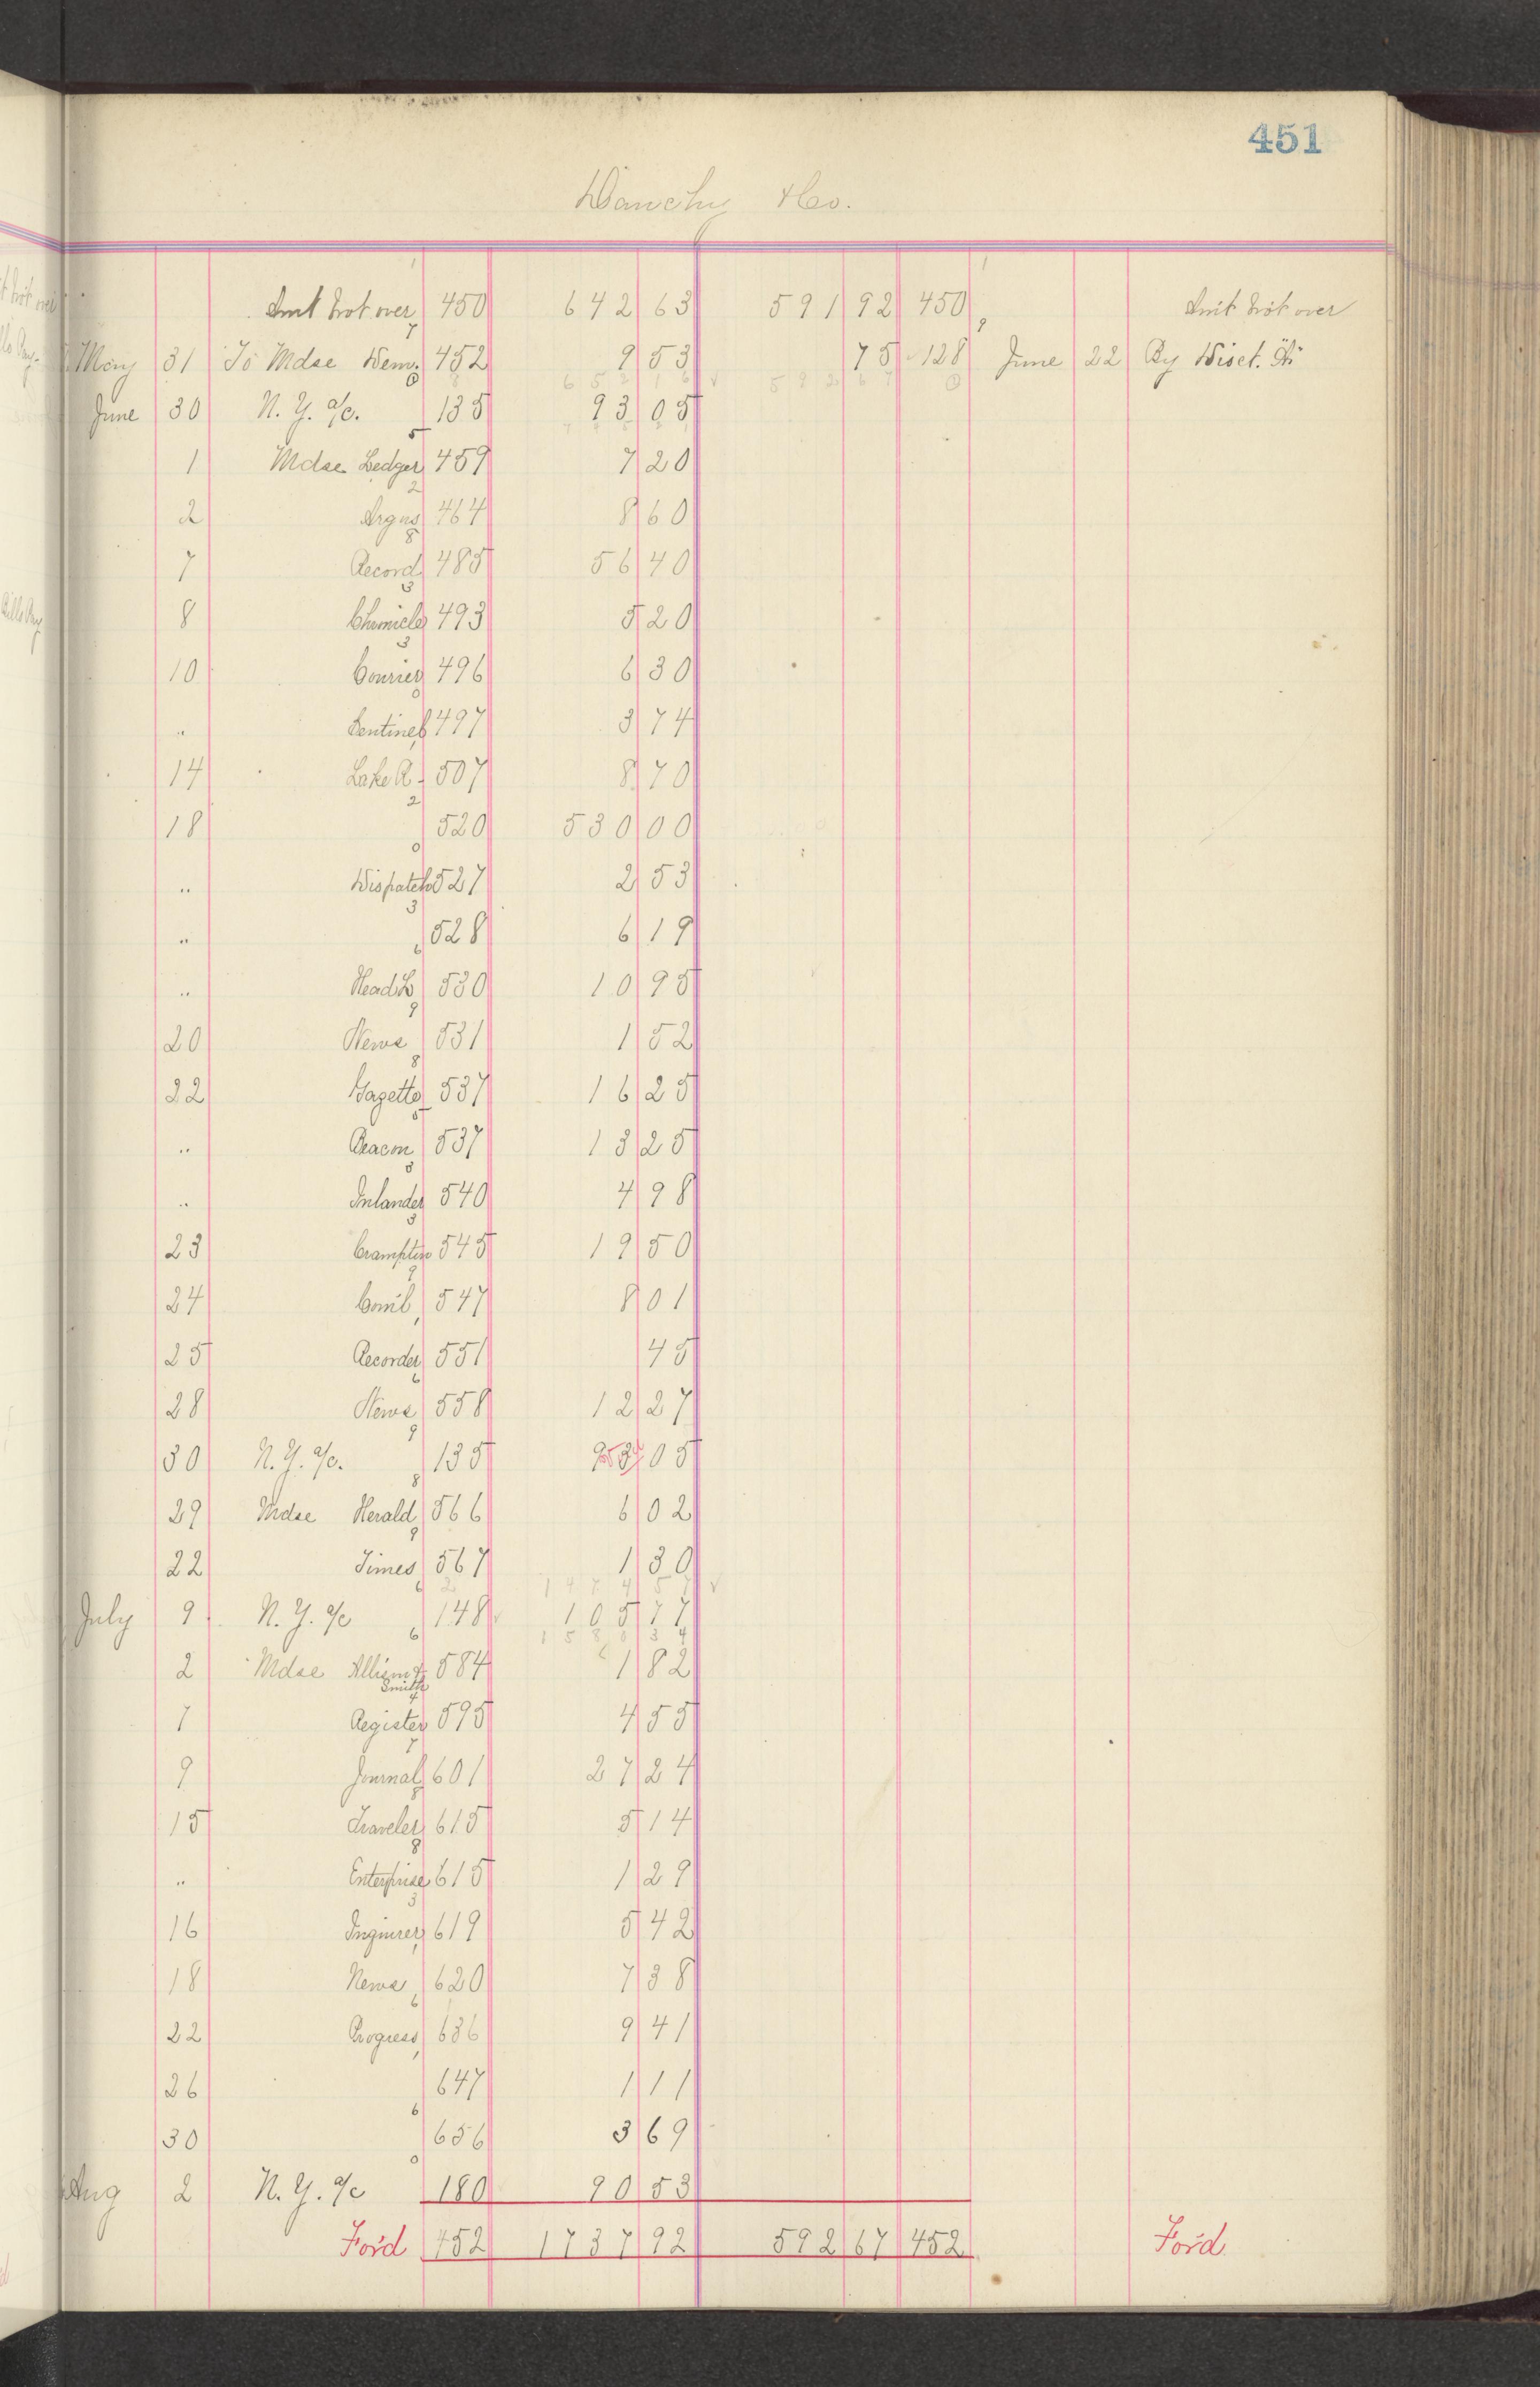 451
Dauchy & Co.
Amt brot over 450 642 63 591 92 450 Amt brot over
May 31 To Mdse Dem. 452 9 53 75 128 June 22 By Disct. Str
652 16 592 67
June 30 N. Y. a/c. 135 93 05
1 Mdse Ledger 459 7 20
2 Argus 464 8 60
7 Record 485 56 40
8 Chronicle 493 5 20
10 Courier 496 6 30
" Sentinel 497 3 74
14 Lake R 507 8 70
18 520 530 00
" Dispatch 527 2 53
" 528 6 19
" Head L 530 10 95
20 News 531 1 52
22 Gazette 537 16 25
" Beacon 537 13 25
" Inlander 540 4 98
23 Crampton 545 19 50
24 Coml 547 8 01
25 Recorder 551 45
28 News 558 12 27
30 N. Y. a/c. 135 93 05
29 Mdse Herald 566 6 02
22 Times 567 1 30
147 4 57
July 9 N. Y. a/c 148 105 77
2 Mdse Allison & Smith 584 1 82
7 Register 595 4 55
9 Journal 601 27 24
15 Traveler 615 5 14
" Enterprise 615 1 29
16 Inquirer 619 5 42
18 News 620 7 38
22 Progress 636 9 41
26 647 1 11
30 656 3 69
Aug 2 N. Y. a/c 180 90 53
For'd 452 1737 92 592 67 452 For'd